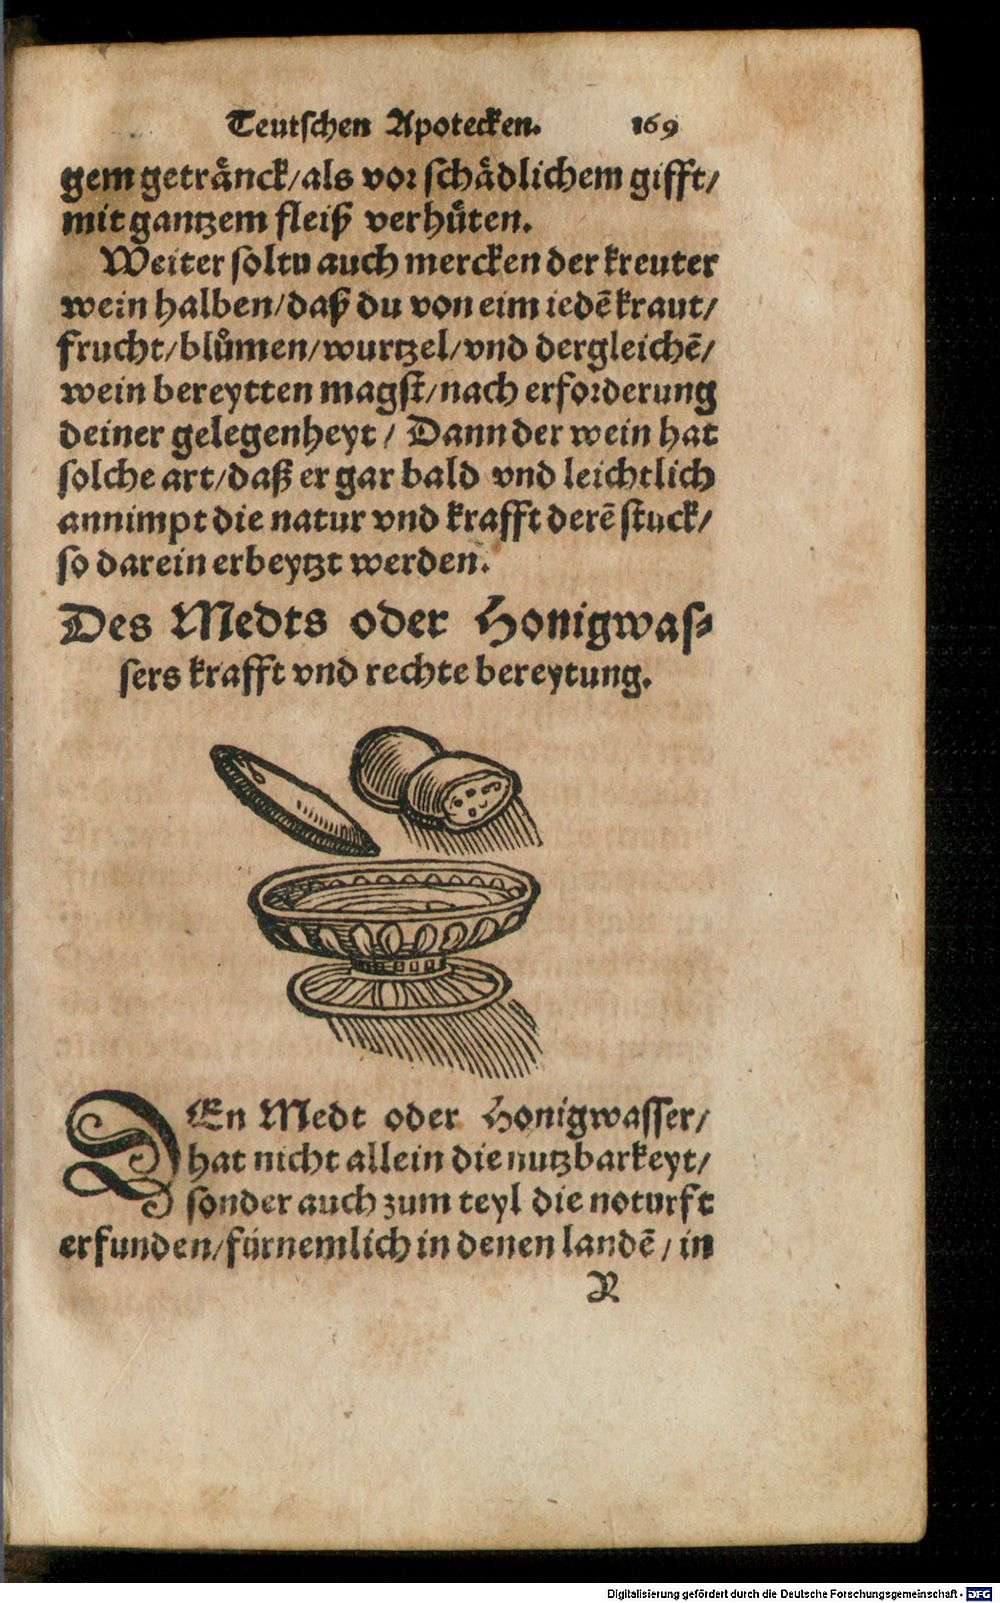 Teutschen Apotecken. 169
gem getränck/als vor schädlichem gifft/
mit gantzem fleiß verhüten.
Weiter soltu auch mercken der kreuter
wein halben/daß du von eim iedē kraut/
frucht/blůmen/wurtzel/vnd dergleichē/
wein bereytten magst/nach erforderung
deiner gelegenheyt/ Dann der wein hat
solche art/daß er gar bald vnd leichtlich
annimpt die natur vnd krafft derē stuck/
so darein erbeytzt werden.
Des Medts oder Honigwas⸗
sers krafft vnd rechte bereytung.
DEn Medt oder Honigwasser/
hat nicht allein die nutzbarkeyt/
sonder auch zum teyl die noturft
erfunden/fürnemlich in denen landē/ in
R
Digitalisierung gefördert durch die Deutsche Forschungsgemeinschaft - DFG